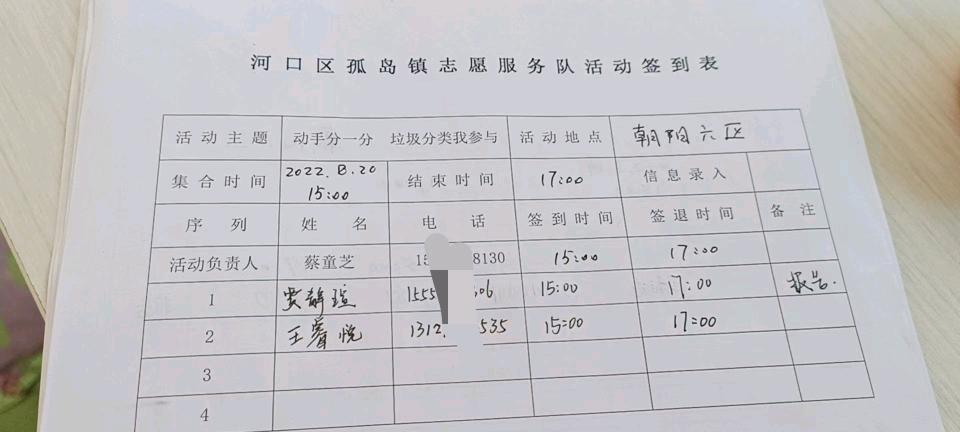 河口区孤岛镇志愿服务队活动签到表
活动主题 动手分一分 垃圾分类我参与 活动地点 朝阳六区
集合时间 2022.8.20 15:00 结束时间 17:00 信息录入
序列 姓名 电话 签到时间 签退时间 备注
活动负责人 蔡童芝 15 8130 15:00 17:00
1 贾静瑄 1555 506 15:00 17:00 报告.
2 王睿悦 1312. 535 15:00 17:00
3
4